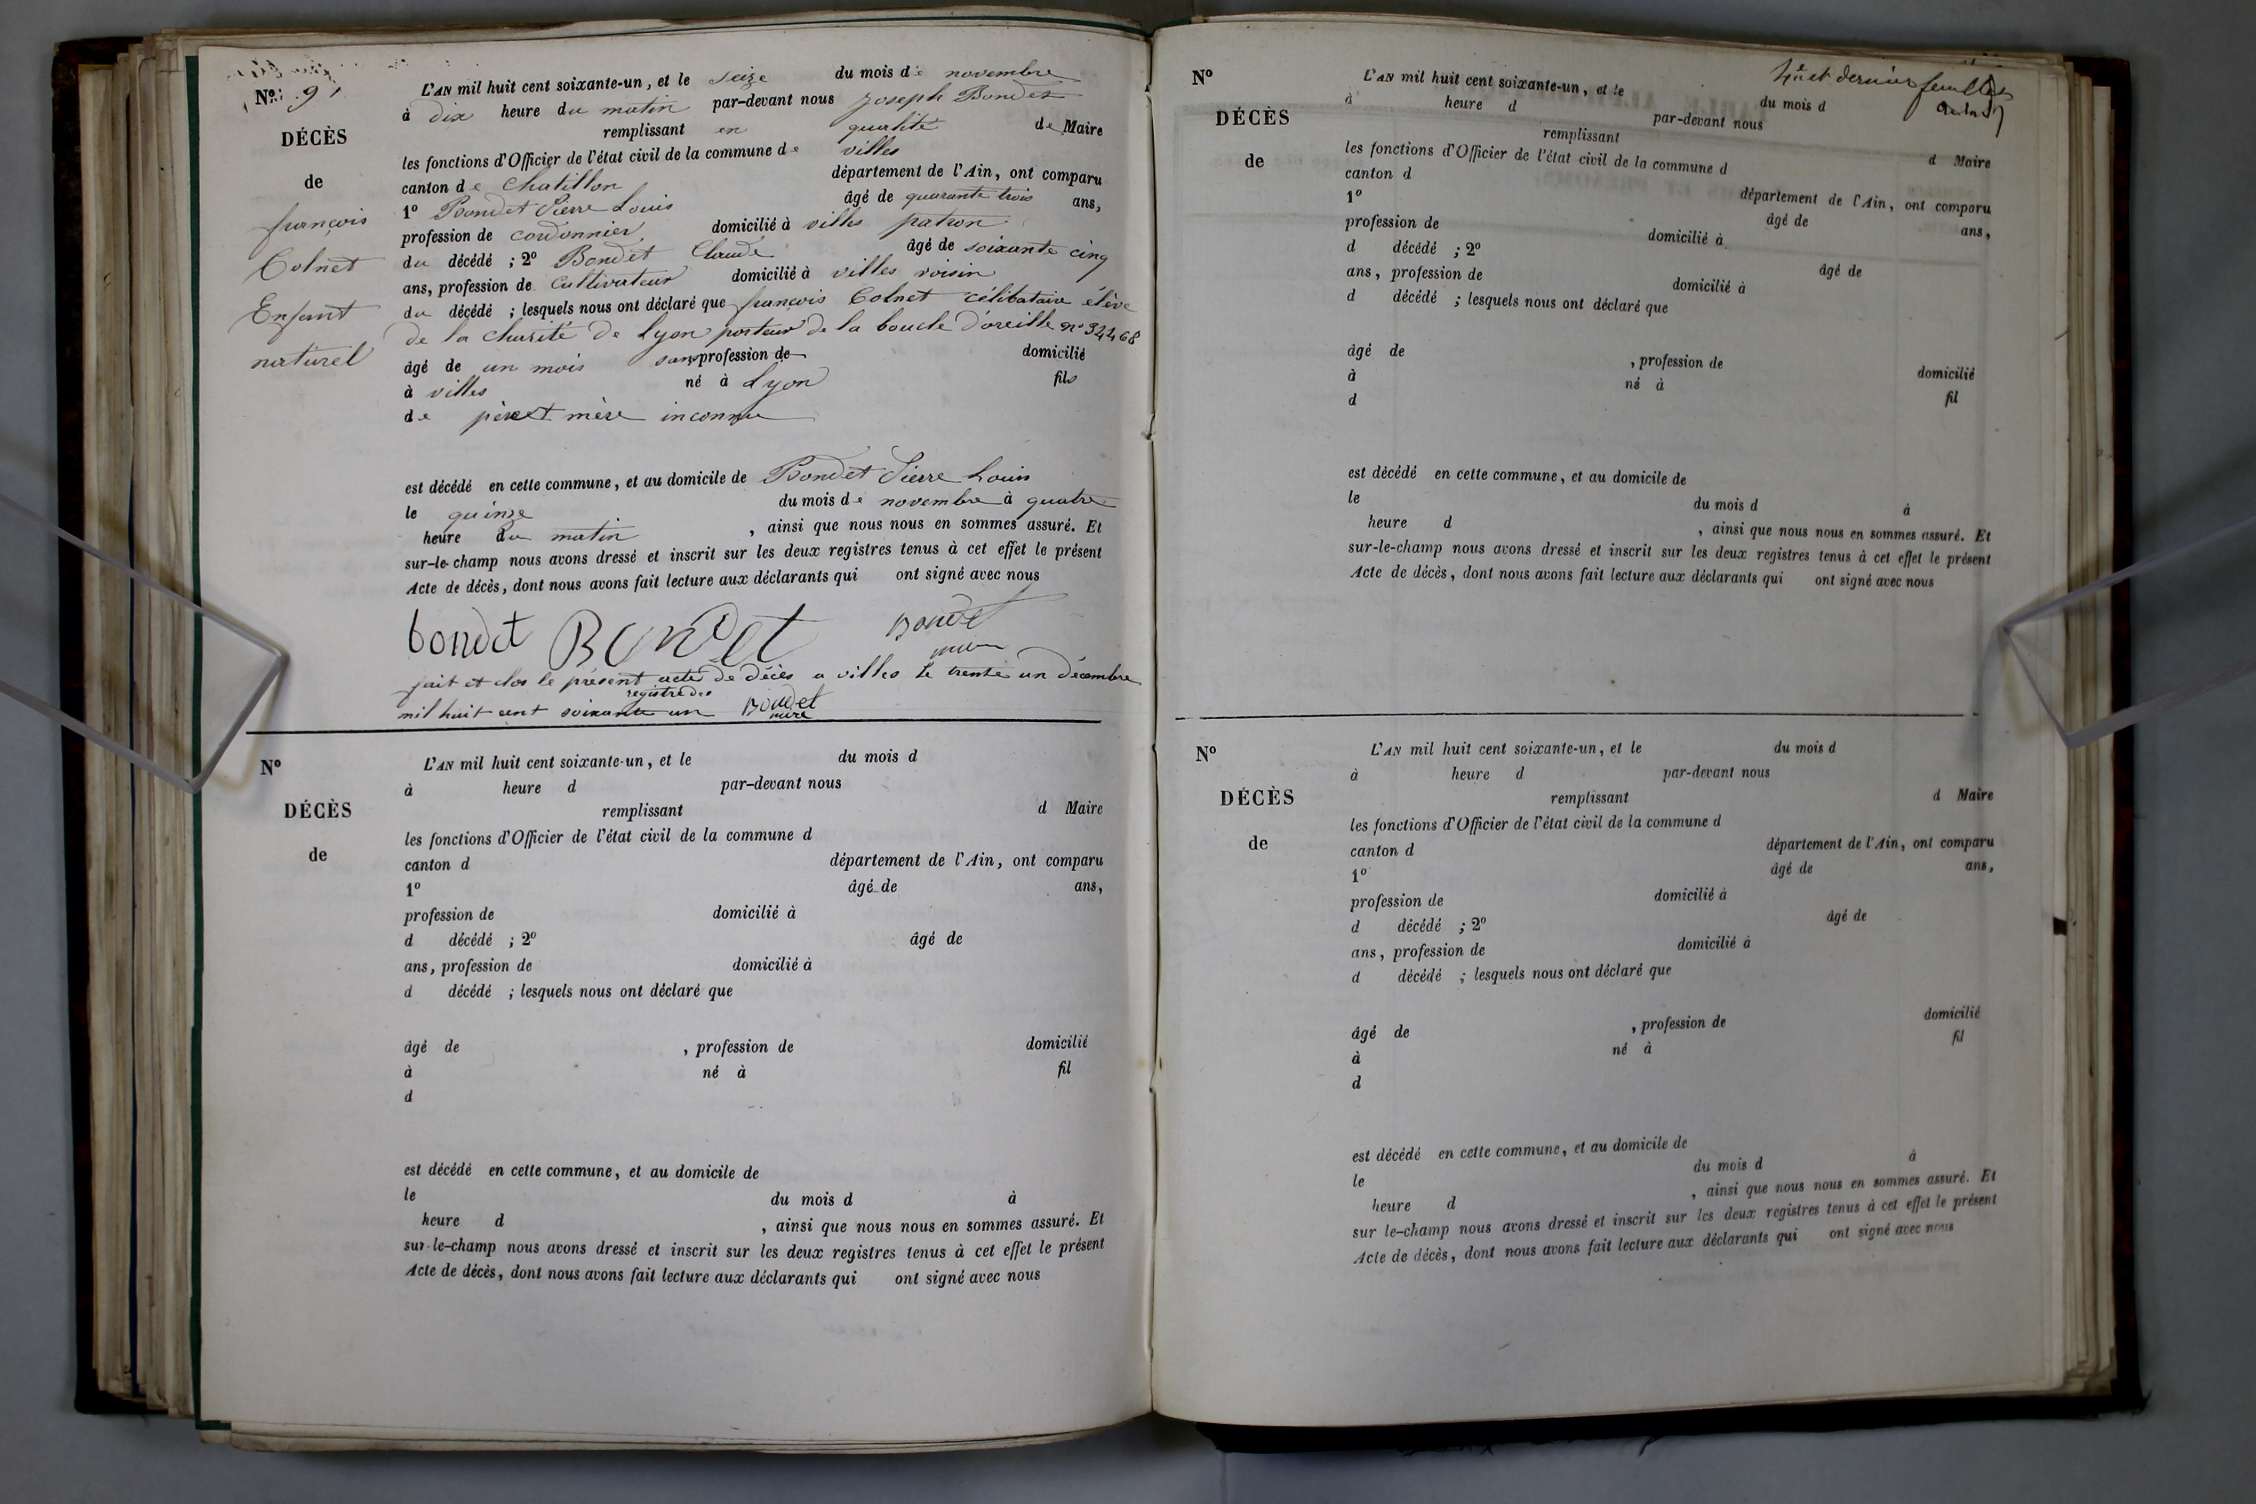 N° 9
DÉCÈS
de
françois
Colnet
Enfant
naturel
L'AN mil huit cent soixante-un, et le seize du mois de novembre
à dix heure du matin par-devant nous Joseph Bondet
remplissant en qualité de Maire
les fonctions d'Officier de l'état civil de la commune de villes
canton de Chatillon département de l'Ain, ont comparu
1° Bondet Pierre Louis âgé de quarante trois ans,
profession de cordonnier domicilié à villes patron
du décédé ; 2° Bondet Claude âgé de soixante cinq
ans, profession de Cultivateur domicilié à villes voisin
du décédé ; lesquels nous ont déclaré que françois Colnet célibataire élève
de la charité de Lyon porteur de la boucle d'oreille n°
âgé de un mois sans profession de domicilié
à villes né à Lyon fils
de père et mère inconnu
est décédé en cette commune, et au domicile de Bondet Pierre Louis
le quinze du mois de novembre à quatre
heure du matin , ainsi que nous nous en sommes assuré. Et
sur-le-champ nous avons dressé et inscrit sur les deux registres tenus à cet effet le présent
Acte de décès, dont nous avons fait lecture aux déclarants qui ont signé avec nous
bondet Bondet Bondet
mere
fait et clos le présent acte de décès a villes le trente un décembre
registre des
mil huit cent soixante un Bondet
mere
N°
DÉCÈS
de
L'AN mil huit cent soixante-un, et le du mois d
à heure d par-devant nous
remplissant d Maire
les fonctions d'Officier de l'état civil de la commune d
canton d département de l'Ain, ont comparu
1° âgé de ans,
profession de domicilié à
d décédé ; 2° âgé de
ans, profession de domicilié à
d décédé ; lesquels nous ont déclaré que
âgé de , profession de domicilié
à né à fil
d
est décédé en cette commune, et au domicile de
le du mois d à
heure d , ainsi que nous nous en sommes assuré. Et
sur-le-champ nous avons dressé et inscrit sur les deux registres tenus à cet effet le présent
Acte de décès, dont nous avons fait lecture aux déclarants qui ont signé avec nous
et dernier feuillet
N°
DÉCÈS
de
L'AN mil huit cent soixante-un, et le du mois d
à heure d par-devant nous
remplissant d Maire
les fonctions d'Officier de l'état civil de la commune d
canton d département de l'Ain, ont comparu
1° âgé de ans,
profession de domicilié à
d décédé ; 2° âgé de
ans, profession de domicilié à
d décédé ; lesquels nous ont déclaré que
âgé de , profession de domicilié
à né à fil
d
est décédé en cette commune, et au domicile de
le du mois d à
heure d , ainsi que nous nous en sommes assuré. Et
sur-le-champ nous avons dressé et inscrit sur les deux registres tenus à cet effet le présent
Acte de décès, dont nous avons fait lecture aux déclarants qui ont signé avec nous
N°
DÉCÈS
de
L'AN mil huit cent soixante-un, et le du mois d
à heure d par-devant nous
remplissant d Maire
les fonctions d'Officier de l'état civil de la commune d
canton d département de l'Ain, ont comparu
1° âgé de ans,
profession de domicilié à
d décédé ; 2° âgé de
ans, profession de domicilié à
d décédé ; lesquels nous ont déclaré que
âgé de , profession de domicilié
à né à fil
d
est décédé en cette commune, et au domicile de
le du mois d à
heure d , ainsi que nous nous en sommes assuré. Et
sur le-champ nous avons dressé et inscrit sur les deux registres tenus à cet effet le présent
Acte de décès, dont nous avons fait lecture aux déclarants qui ont signé avec nous